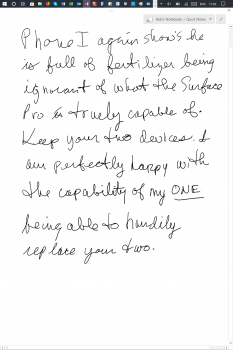 Rob's Notebook > Quick Notes
PhoneI again shows he
is full of fertilizer being
ignorant of what the Surface
Pro is truely capable of.
Keep your two devices. I
am perfectly happy with
the capability of my ONE
being able to handily
replace your two.